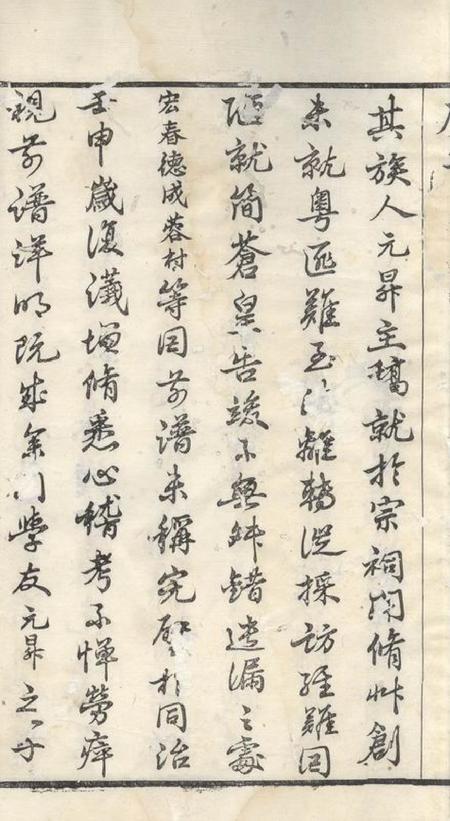 其族人元昇主稿就於宗祠開脩艸創
未就粵匪難至流離轉徙採訪維難因
陋就簡蒼皇告竣不無舛錯遺漏之處
宏春德成蓉村等因前譜未稱完璧於同治
壬申歲復議增脩悉心稽考不憚勞瘁
視前譜詳明既成余門學友元昇之子